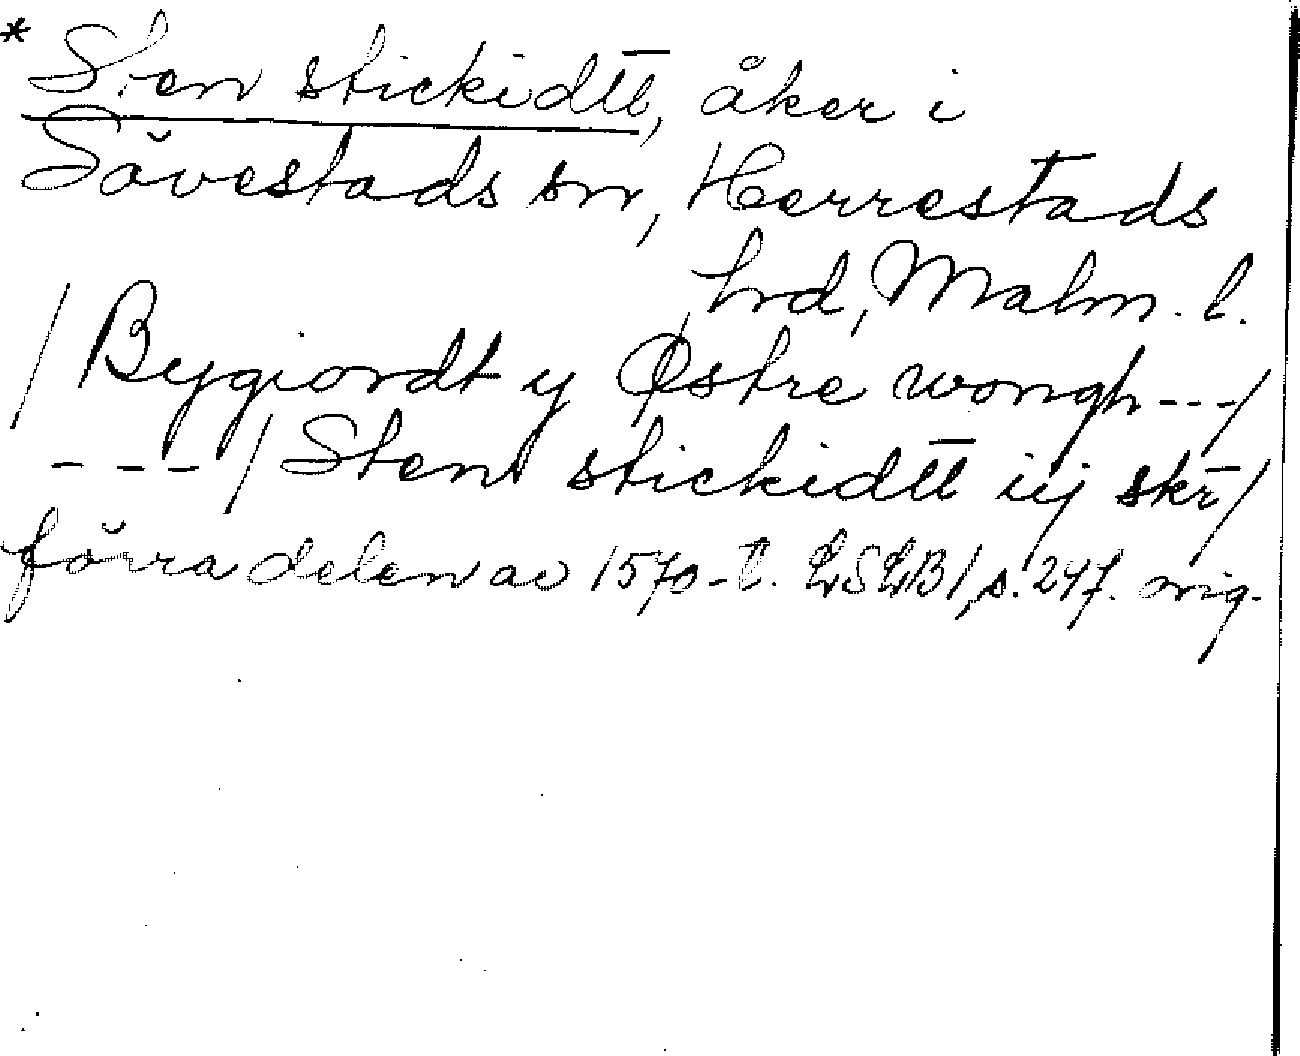 * Sten stickidtt, åker i
Sövestads sn, Herrestads
hrd, Malm. l.
/ Bygiordt y Østre wongh --- /
--- / Sten stickidtt iij skr /
förra delen av 1570-t. LSLB 1, s. 247. orig.